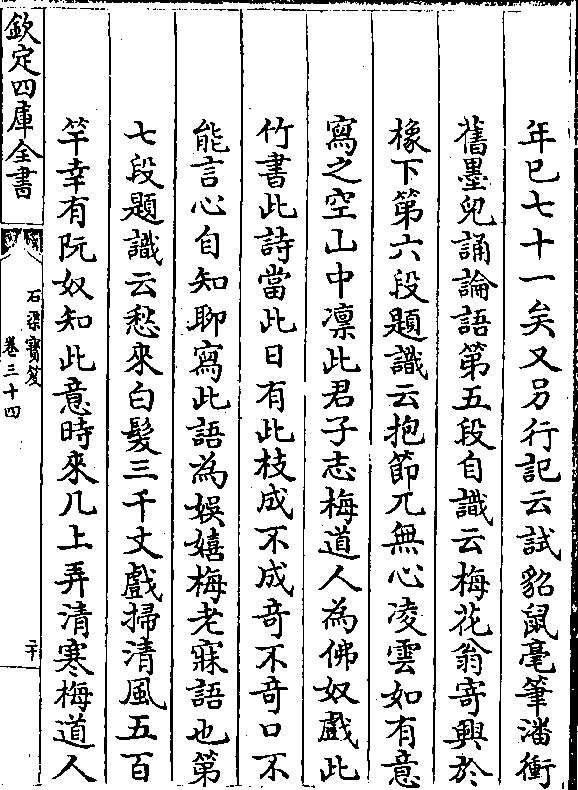 年已七十一矣又另行記云試貂鼠毫筆潘衝
舊墨兒誦論語第五段自識云梅花翁寄興於
橡下第六段題識云抱節兀無心凌雲如有意
寫之空山中凛此君子志梅道人為佛奴戲此
竹書此詩當此日有此枝成不成竒不竒口不
能言心自知聊寫此語為娱嬉梅老寐語也第
七段題識云愁來白髮三千丈戲掃清風五百
竿幸有阮奴知此意時來几上弄清寒梅道人
欽定四庫全書
石渠寶笈
卷三十四